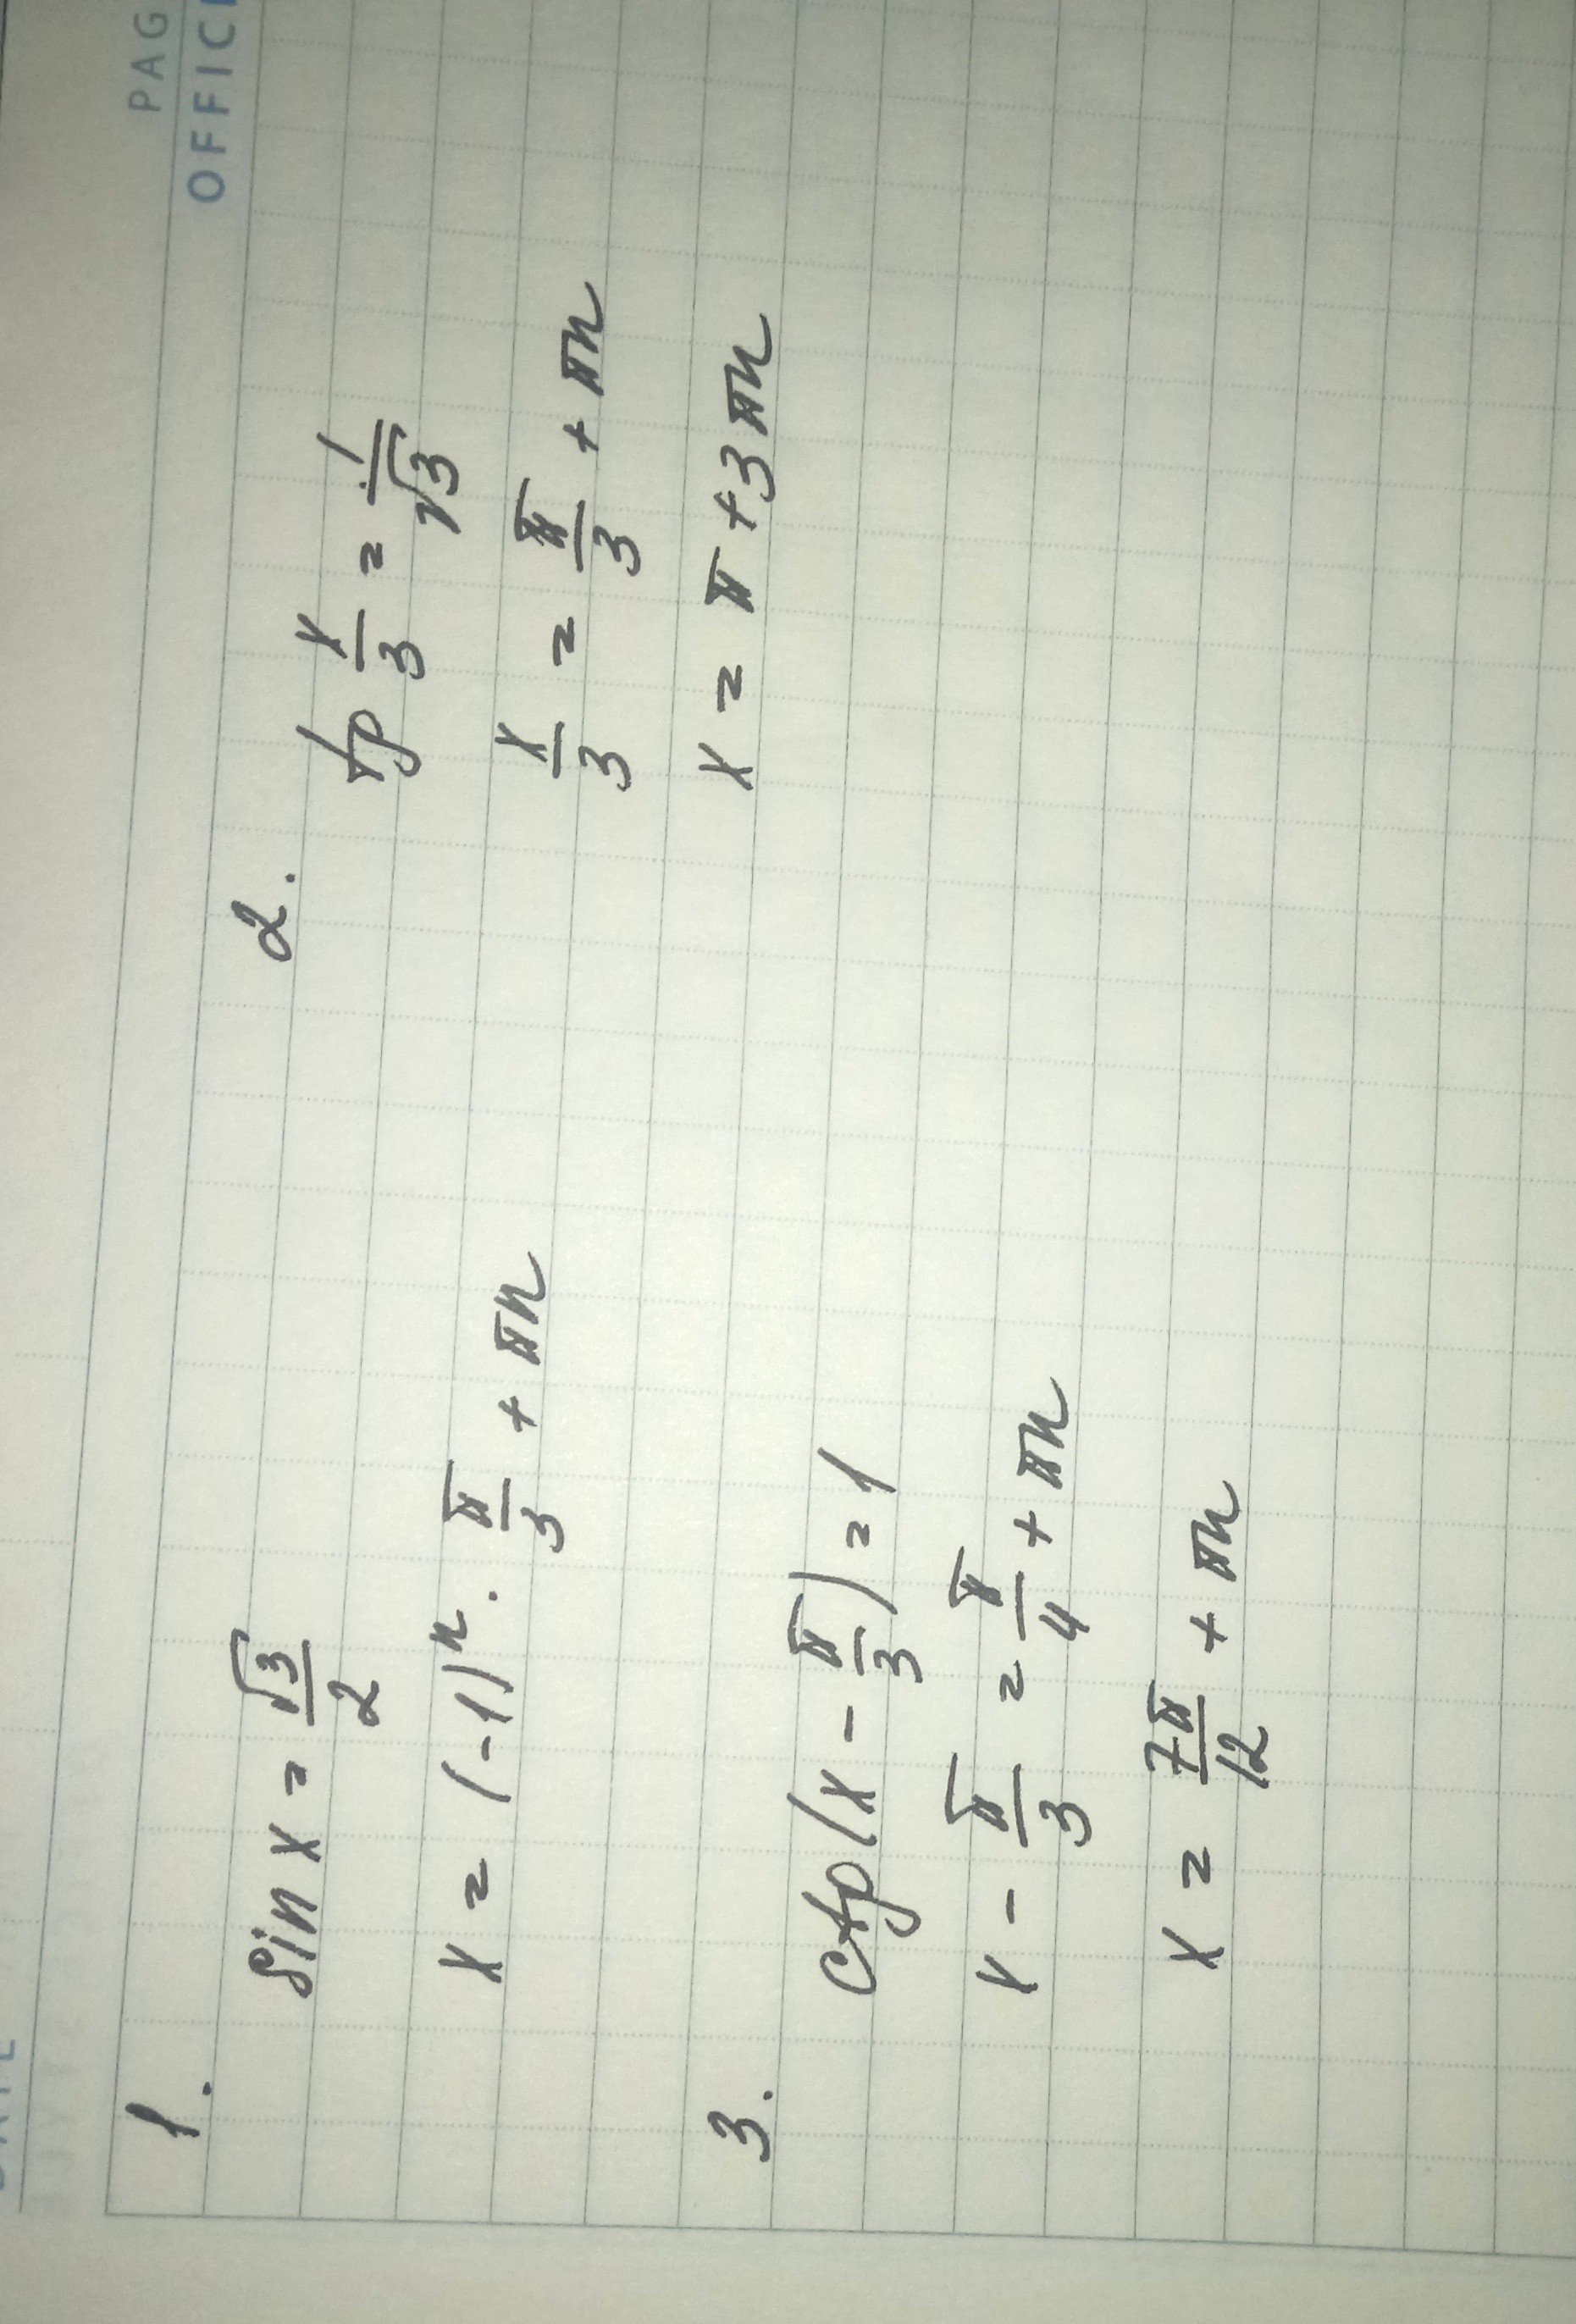 PAG
OFFICE
1.
sin x = √3/2
x = (-1)ⁿ · π/3 + πn
2.
tg x/3 = 1/√3
x/3 = π/3 + πn
x = π + 3πn
3.
ctg(x - π/3) = 1
x - π/3 = π/4 + πn
x = 7π/12 + πn